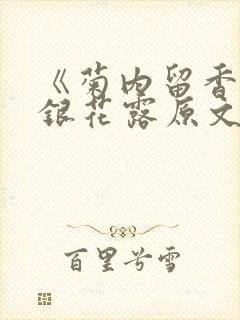 《菊内留香
銀花露原文
百里兮雪